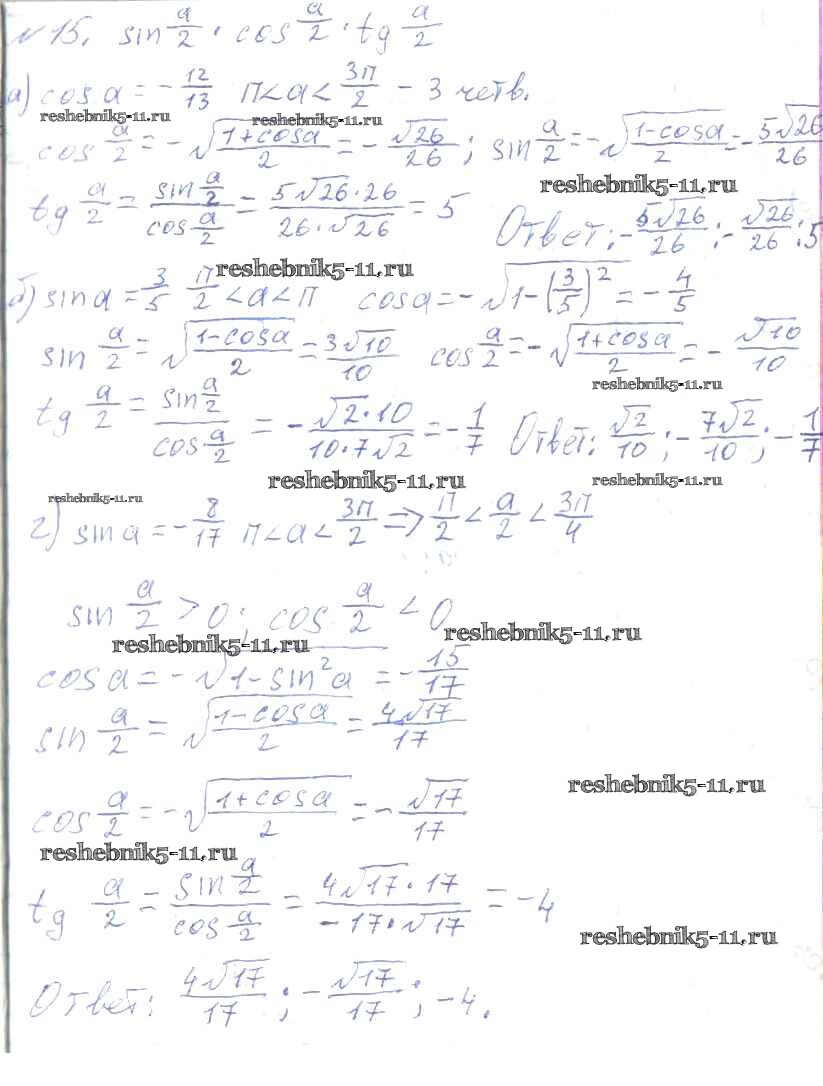 №15. sin a/2 · cos a/2 · tg a/2
а) cos a = -12/13 п<a<3п/2 - 3 четв.
reshebnik5-11.ru reshebnik5-11.ru
cos a/2 = -√((1+cos a)/2) = -√26/26; sin a/2 = -√((1-cos a)/2) = -5√26/26
reshebnik5-11.ru
tg a/2 = (sin a/2)/(cos a/2) = (5√26·26)/(26·√26) = 5 Ответ: -5√26/26; -√26/26; 5
reshebnik5-11.ru
б) sin a = 3/5 п/2<a<п cos a = -√(1-(3/5)²) = -4/5
sin a/2 = √((1-cos a)/2) = 3√10/10 cos a/2 = -√((1+cos a)/2) = -√10/10
reshebnik5-11.ru
tg a/2 = (sin a/2)/(cos a/2) = -(√2·10)/(10·7√2) = -1/7 Ответ: √2/10; -7√2/10; -1/7
reshebnik5-11.ru reshebnik5-11.ru
reshebnik5-11.ru
г) sin a = -8/17 п<a<3п/2 => п/2<a/2<3п/4
sin a/2 > 0; cos a/2 < 0
reshebnik5-11.ru reshebnik5-11.ru
cos a = -√(1-sin²a) = -15/17
sin a/2 = √((1-cos a)/2) = 4√17/17
reshebnik5-11.ru
cos a/2 = -√((1+cos a)/2) = -√17/17
reshebnik5-11.ru
tg a/2 = (sin a/2)/(cos a/2) = (4√17·17)/(-17·√17) = -4
reshebnik5-11.ru
Ответ: 4√17/17; -√17/17; -4.